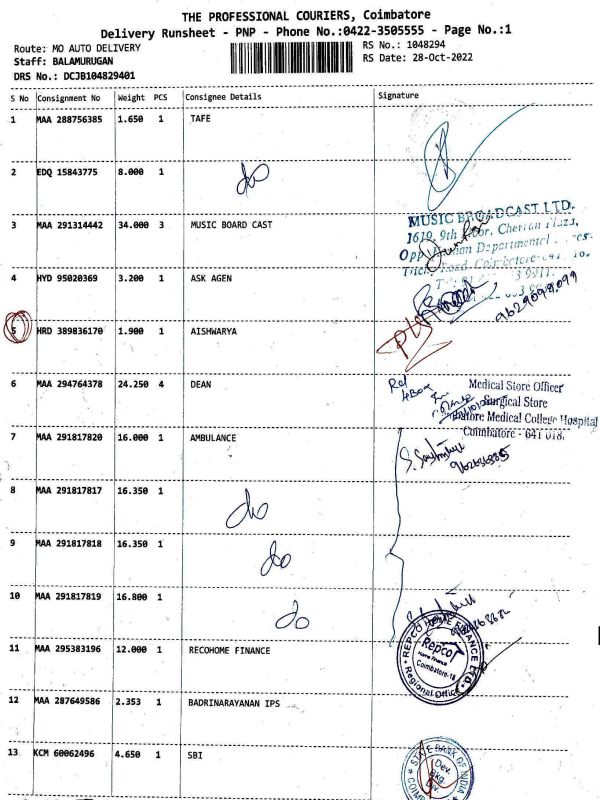 THE PROFESSIONAL COURIERS, Coimbatore
Delivery Runsheet - PNP - Phone No.:0422-3505555 - Page No.:1
Route: MO AUTO DELIVERY
RS No.: 1048294
Staff: BALAMURUGAN
RS Date: 28-Oct-2022
DRS No.: DCJB104829401
S No Consignment No Weight PCS Consignee Details Signature
1 MAA 288756385 1.650 1 TAFE
2 EDQ 15843775 8.000 1 do
3 MAA 291314442 34.000 3 MUSIC BOARD CAST
MUSIC BROADCAST LTD.
1619, 9th Floor, Cherian Plaza,
Opp. Indian Departmental
Road, Coimbatore-641
4 HYD 95020369 3.200 1 ASK AGEN
5 HRD 389836170 1.900 1 AISHWARYA
6 MAA 294764378 24.250 4 DEAN
Medical Store Officer
Surgical Store
Medical College Hospital
Coimbatore - 641 018.
7 MAA 291817820 16.000 1 AMBULANCE
8 MAA 291817817 16.350 1 do
9 MAA 291817818 16.350 1 do
10 MAA 291817819 16.800 1 do
11 MAA 295383196 12.000 1 RECOHOME FINANCE
REPCO HOME FINANCE LTD.
Repco
Home Finance
Coimbatore-18
Regional Office
12 MAA 287649586 2.353 1 BADRINARAYANAN IPS
13 KCM 60062496 4.650 1 SBI
STATE BANK OF INDIA
Dev.
Bkg.
Div.